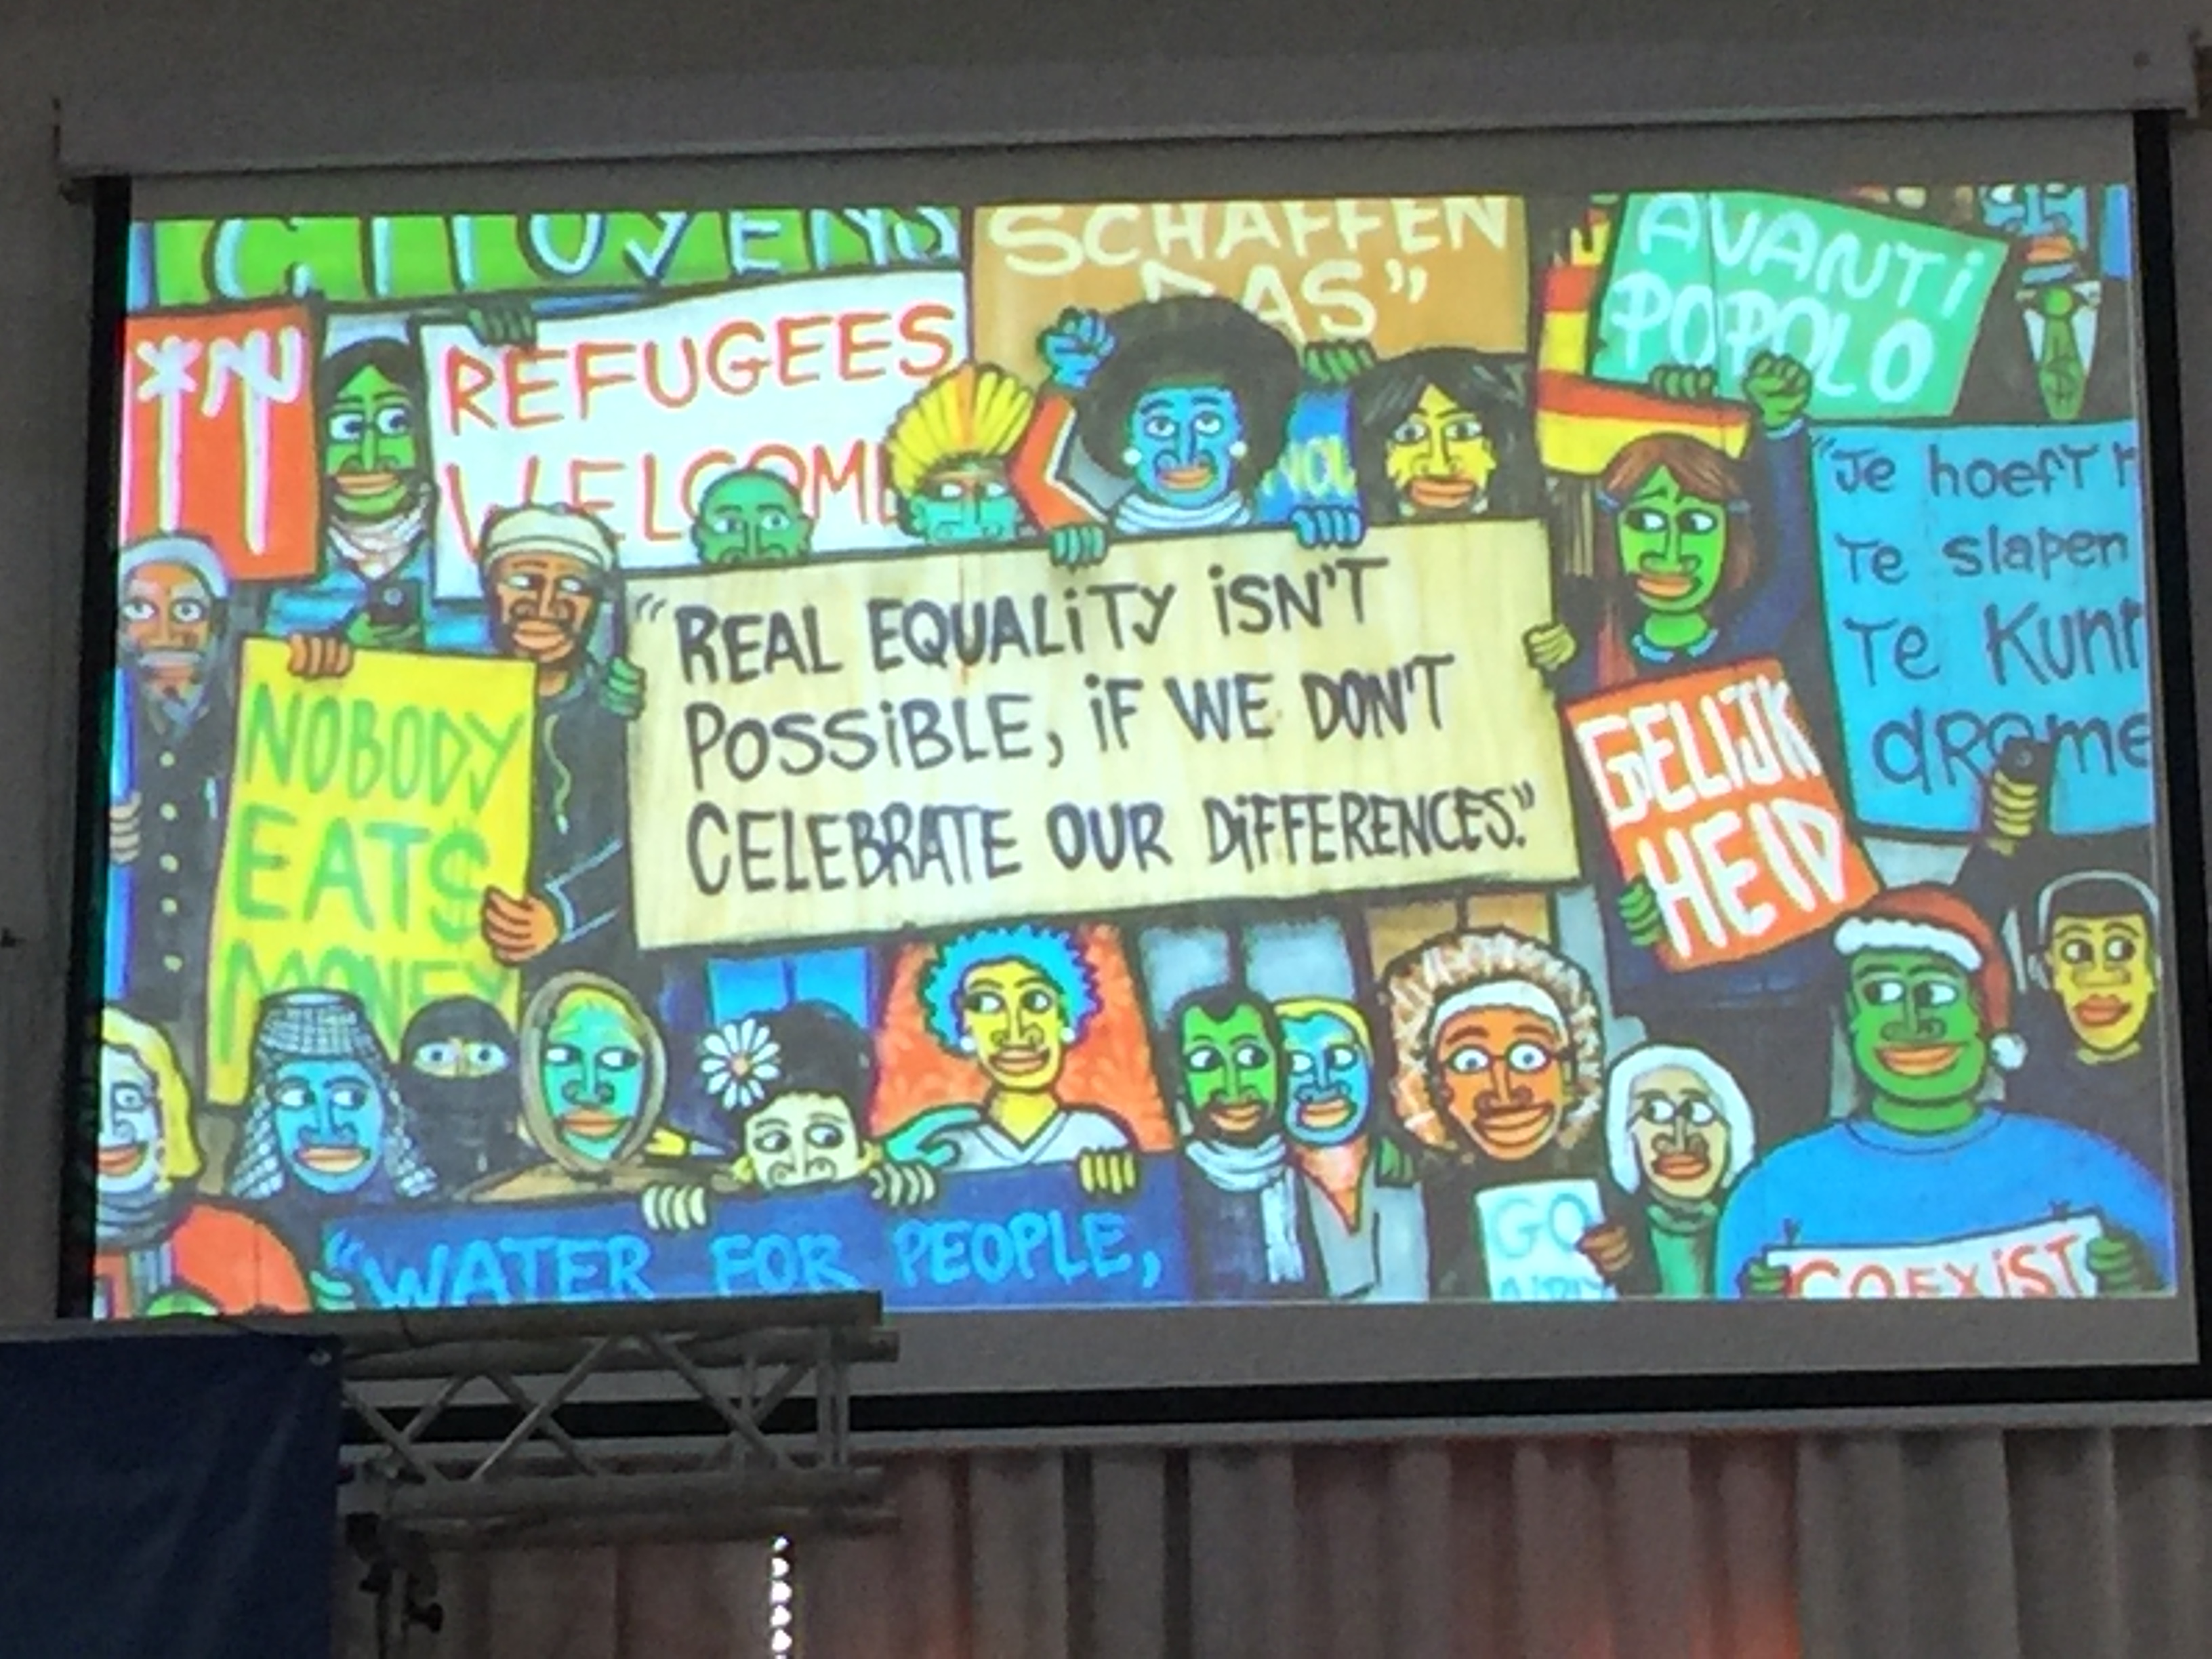 CITOYENS
SCHAFFEN
DAS”
AVANTi
POPOLO
REFUGEES
WELCOME
“Je hoeft
Te slapen
Te
“REAL EQUALiTY iSN'T
POSSiBLE, iF WE DON'T
CELEBRATE OUR DiFFERENCES.”
NOBODY
EAT$
MONEY
GELIJK
HEID
“WATER FOR PEOPLE,
GO
COEXiST